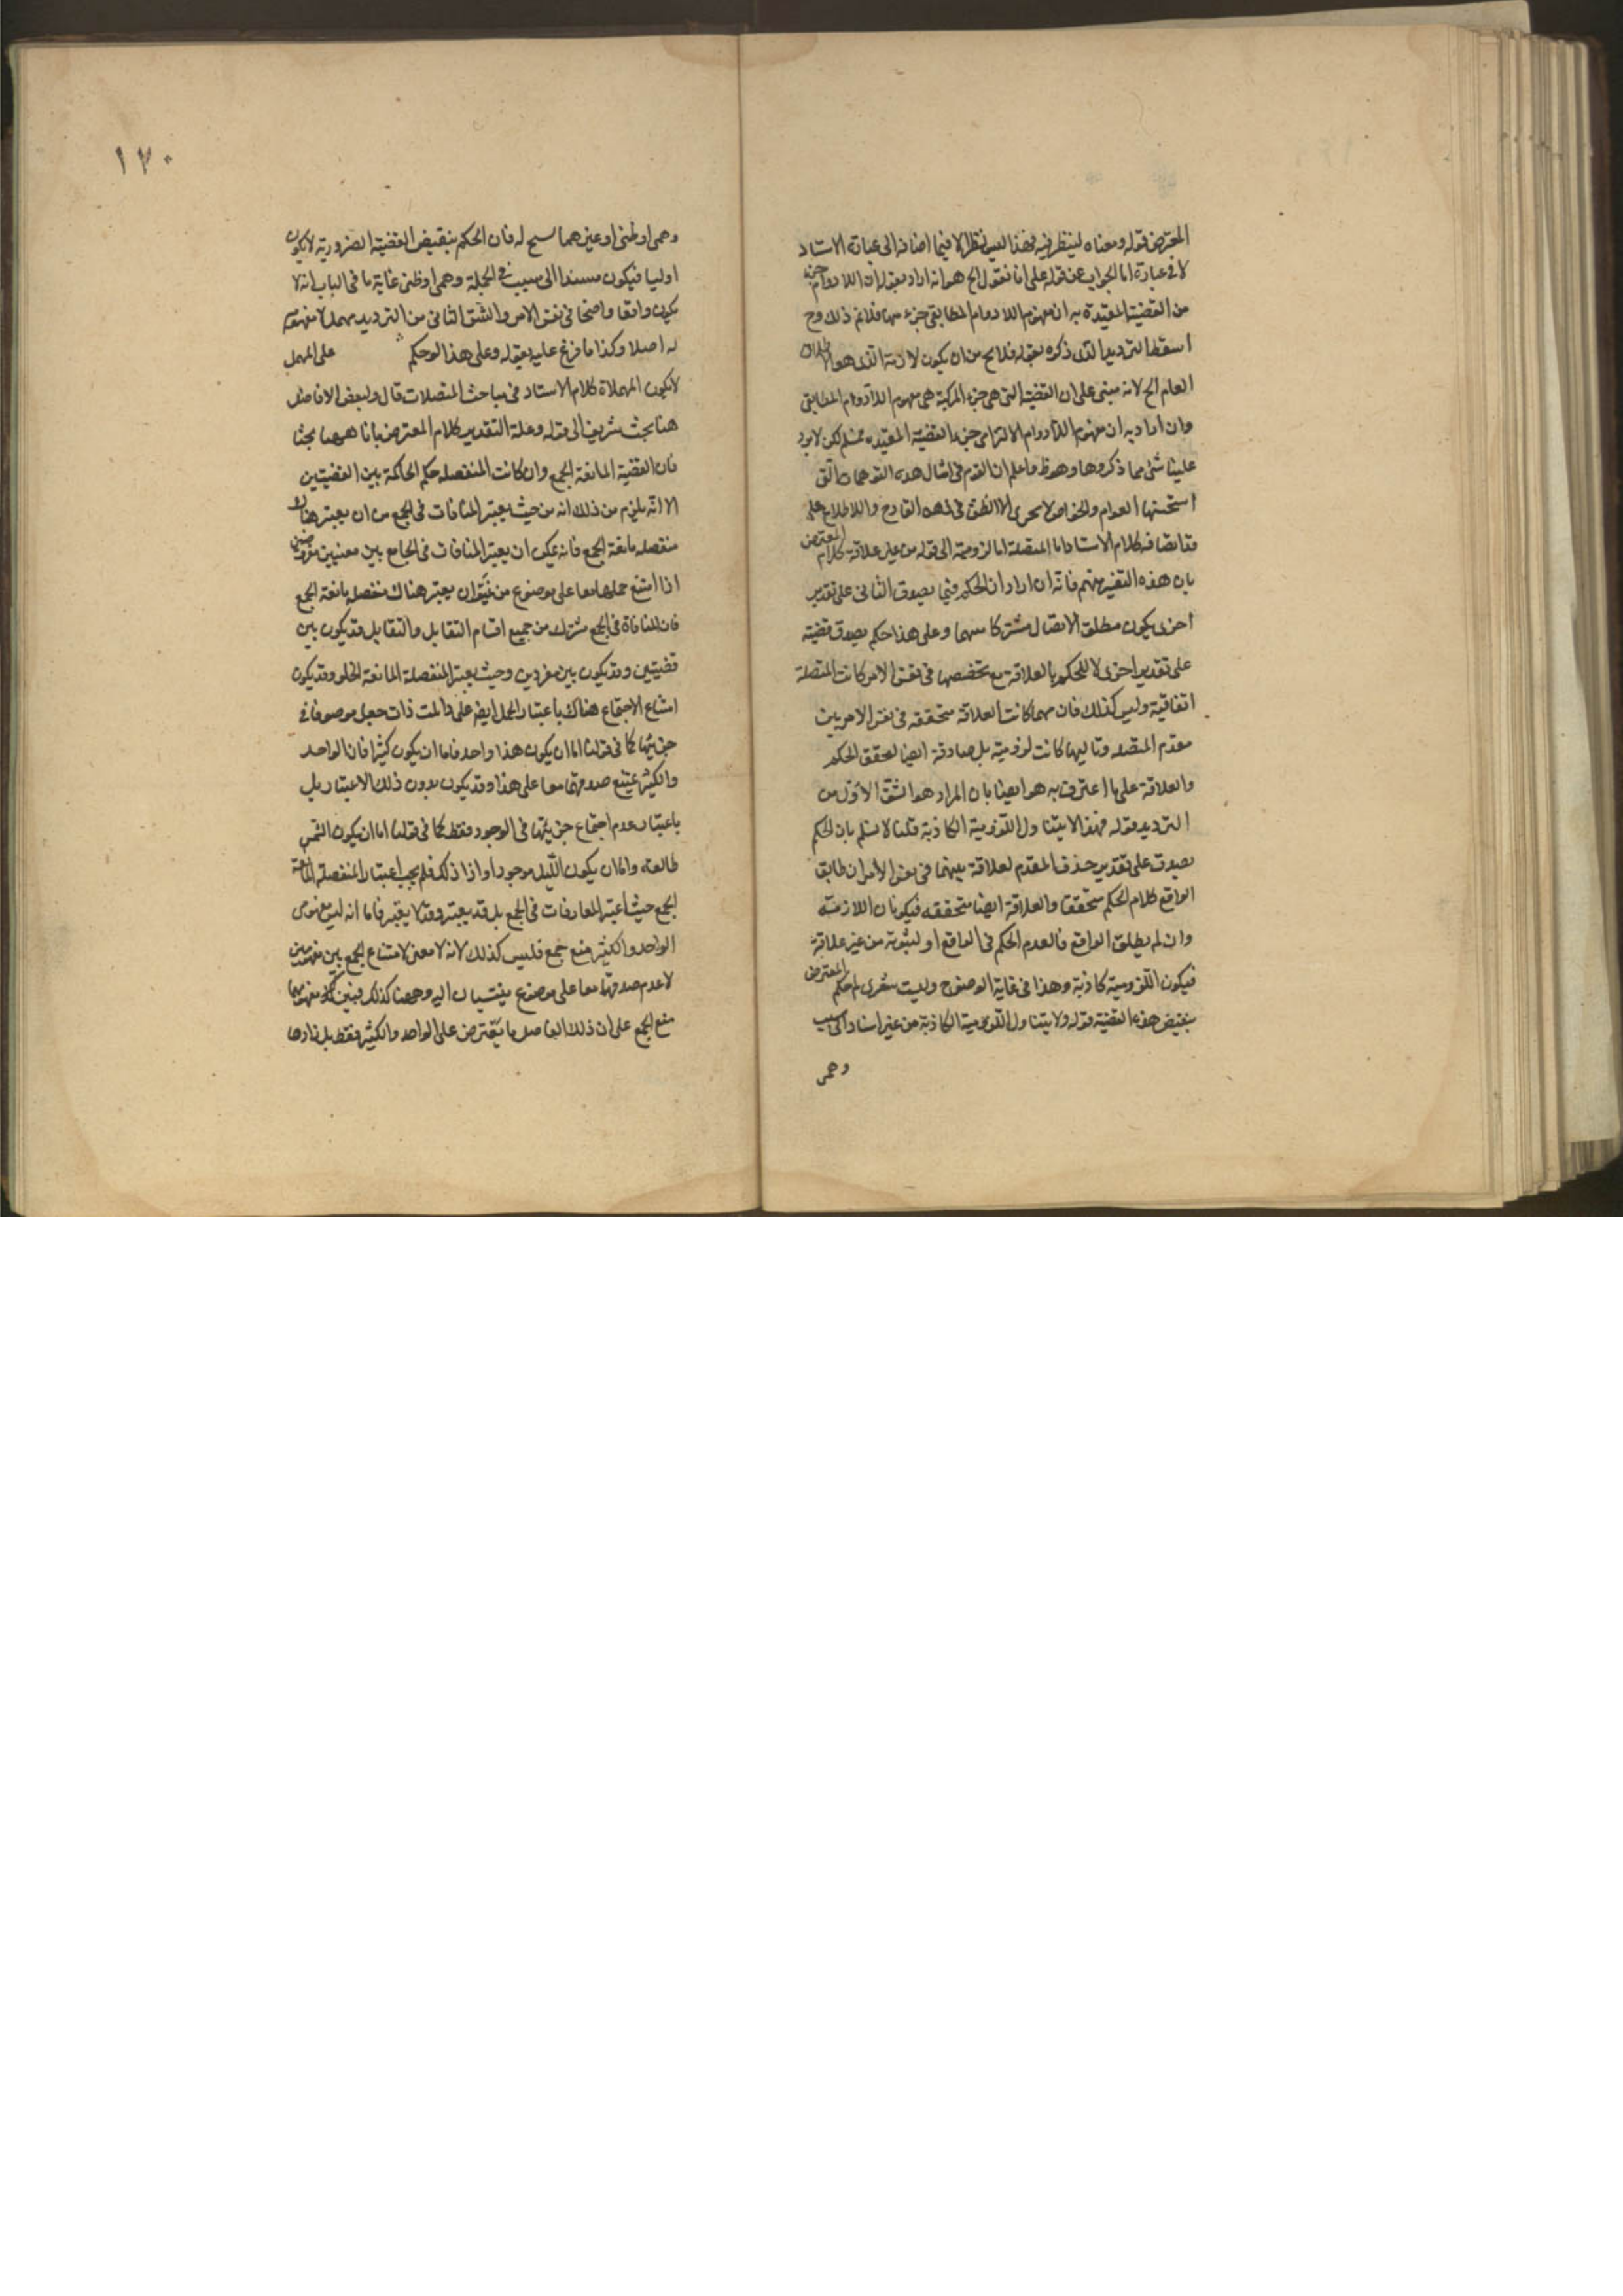 المعترض قوله ومعناه لينظر فيه فهذا ليس نظرا الا فيما اضافه الى عبارة الاستاد
لا في عبارة اما الجواب عن قوله على انا نقول الخ هو انه اراد بقوله ان اللادوام جزء
من القضية المقيدة به ان مفهوم اللادوام المطابقى جزء منها فلا نم ذلك وح
اسقط الترديد الذى ذكره بقوله فلا يخ من ان يكون لازمه الذى هو الاطلاق
العام الخ لانه مبنى على ان القضية التى هى جزء المركبة هى مفهوم اللادوام المطابقى
وان اراد به ان مفهوم اللادوام الالتزامى جزء القضية المقيده فمسلم لكن لا يرد
علينا شئ مما ذكروها وهو ظ واعلم ان القوم فى امثال هذه التوهمات التى
استحسنها العوام والخواص لا يجرى الا النطق فى القادح والاطلاع على
كلام الاستاد اما المتصلة اما لزومية الى قوله من غير علاقة كلام المعترض
بان هذه التفسير منهم فانه ان اراد ان الحكم فيها بصدق الثانى على تقدير
اخرى يكون مطلق الاتصال مشتركا بينهما وعلى هذا حكم بصدق قضية
على تقدير اخرى لا للحكم بالعلاقة مع تخصصها فى نفس الامر كانت المتصلة
اتفاقية وليس كذلك فان مهما كانت العلاقة متحققه فى نفس الامر بين
مقدم المتصله وتاليها كانت لزومية بل صادقة ايضا لتحقق الحكم
والعلاقة على ما اعترف به هو ايضا بان المراد هو الشق الاول من
الترديد قوله فهذا لا يتناول اللزومية الكاذبة قلنا لا نسلم بان الحكم
بصدق على تقدير صدق المقدم لعلاقة بينهما فى نفس الامر ان طابق
الواقع كلام الحكم متحققا والعلاقة ايضا متحققه فيكونان اللازمته
وان لم يطابق الواقع فالعدم الحكم فى الواقع او لثبوته من غير علاقة
فيكون اللزومية كاذبة وهذا فى غاية الوضوح وليت شعرى لم حكم المعترض
بنقيض هذه القضية قوله ولا يتناول اللزومية الكاذبة من غير اسناد الى سبب
وهمى
١٧٠
وهمى او ظنى او غيرهما سمح له فان الحكم بنقيض القضية الضرورية لا يكون
اوليا فيكون مسندا الى سبب فى الجملة وهمى او ظنى غاية ما فى الباب انه لا
يكون واقعا واضحا فى نفس الامر والشق الثانى من الترديد مهمل لا مفهوم
له اصلا وكذا ما فرع عليه بقوله وعلى هذا لو حكم على المهمل
لا يكون المهملاة كلام الاستاد فى مباحث المتصلات قال ولبعض الافاضل
هنا بحث شريف الى قوله وعلة التقدير كلام المعترض بانا ههنا بحثا
فان القضية المانعة الجمع وان كانت المنفصله حكم الحاكمة بين القضيتين
الا انه يلزم من ذلك انه من حيث يعتبر المنافات فى الجمع من ان يعتبر هناك
منفصله مانعة الجمع فانه يمكن ان يعتبر المنافات فى الجامع بين معنيين مفروضين
اذا امتنع حملهما معا على موضوع من غير ان يعتبر هناك منفصله مانعة الجمع
فان المنافاة فى الجمع مشترك من جميع اقسام التقابل والتقابل قد يكون بين
قضيتين وقد يكون بين مفردين وحيث يعتبر المنفصلة المانعة الخلو وقد يكون
امتناع الاجتماع هناك باعتبار الحمل ايضا على ذات جعل موصوفا فى
جزئيها كما فى قولنا اما ان يكون هذا واحد فاما ان يكون كثيرا فان الواحد
والكثير يمتنع صدقهما معا على هذا وقد يكون بدون ذلك الاعتبار بل
باعتبار عدم اجتماع جزئيها فى الوجود فقط كما فى قولنا اما ان يكون الشمس
طالعه واما ان يكون الليل موجودا واذا ذلك فلم يجب اعتبار المنفصلة المانعة
الجمع حيث اعتبر المنافات فى الجمع بل قد يعتبر وقد لا يعتبر فاما انه ليس مفهومى
الواحد والكثير منع جمع فليس كذلك لانه لا معنى لامتناع الجمع بين مفهومين
لا عدم صدقهما معا على موضوع ينتسبان اليه وههنا كذلك فبين مفهومهما
منع الجمع على ان ذلك الفاضل ما يعترض على الواحد والكثير فقط بل